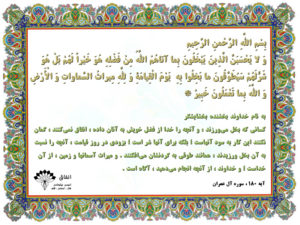 بِسْمِ اللَّهِ الرَّحْمنِ الرَّحِيمِ
وَ لا يَحْسَبَنَّ الَّذِينَ يَبْخَلُونَ بِما آتاهُمُ اللَّهُ مِنْ فَضْلِهِ هُوَ خَيْراً لَهُمْ بَلْ هُوَ
شَرٌّ لَهُمْ سَيُطَوَّقُونَ ما بَخِلُوا بِهِ يَوْمَ الْقِيامَةِ وَ لِلَّهِ مِيراثُ السَّماواتِ وَ الْأَرْضِ
وَ اللَّهُ بِما تَعْمَلُونَ خَبِيرٌ
به نام خداوند بخشنده بخشایشگر
کسانی که بخل می‌ورزند ، و آنچه را خدا از فضل خویش به آنان داده ، انفاق نمی‌کنند ، گمان
نکنند این کار به سود آنهاست ؛ بلکه برای آنها شر است ؛ بزودی در روز قیامت ، آنچه را نسبت
به آن بخل ورزیدند ، همانند طوقی به گردنشان می‌افکنند . و میراث آسمانها و زمین ، از آن
خداست ؛ و خداوند ، از آنچه انجام می‌دهید ، آگاه است .
آیه ۱۸۰ ، سوره آل عمران
انفاق